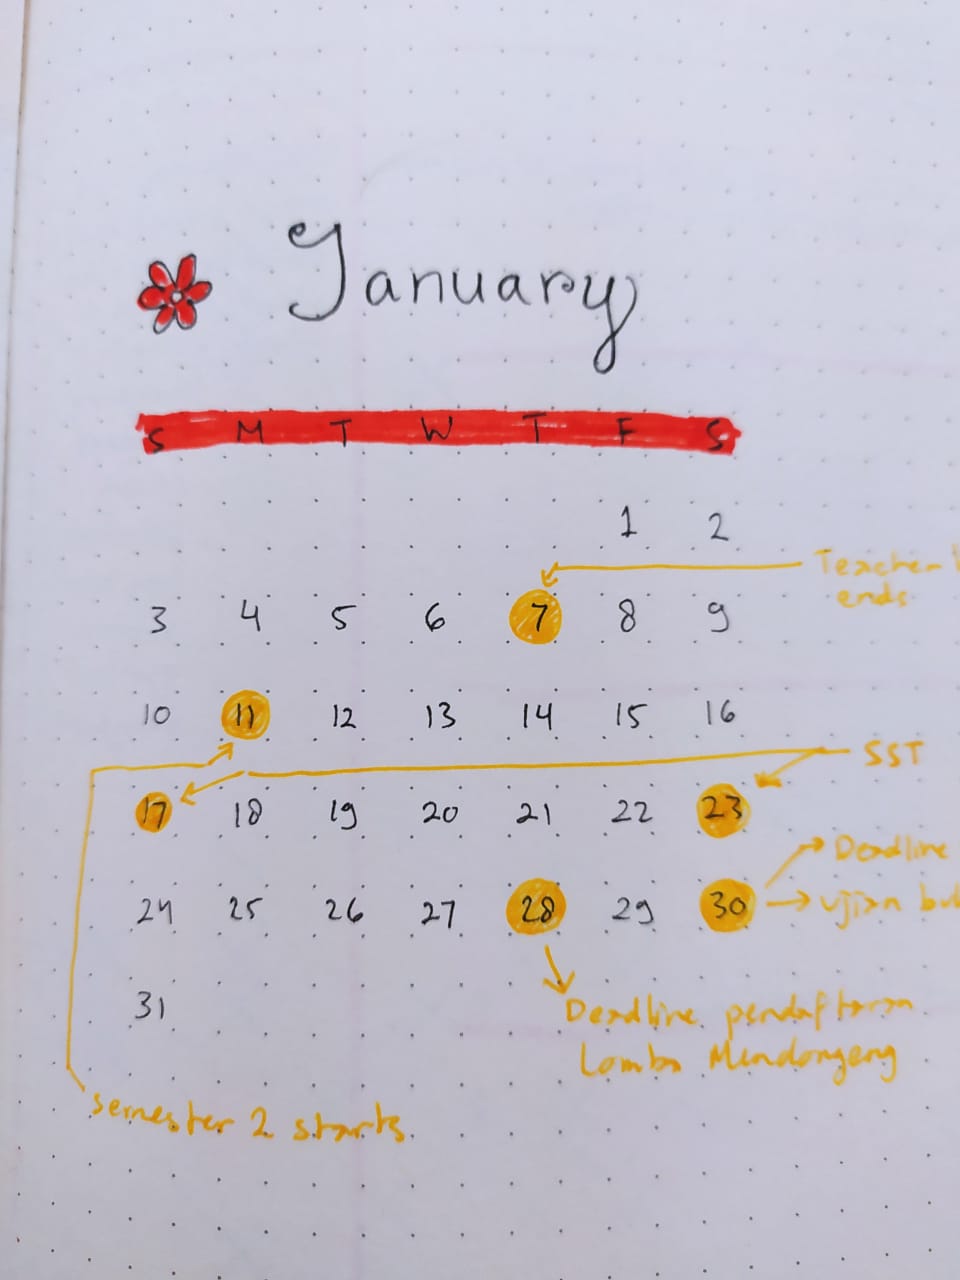 January
S M T W T F S
1 2
Teacher
ends
3 4 5 6 7 8 9
10 11 12 13 14 15 16
SST
17 18 19 20 21 22 23
Deadline
24 25 26 27 28 29 30
ujian
31
Deadline pendaftaran
Lomba Mendongeng
semester 2 starts